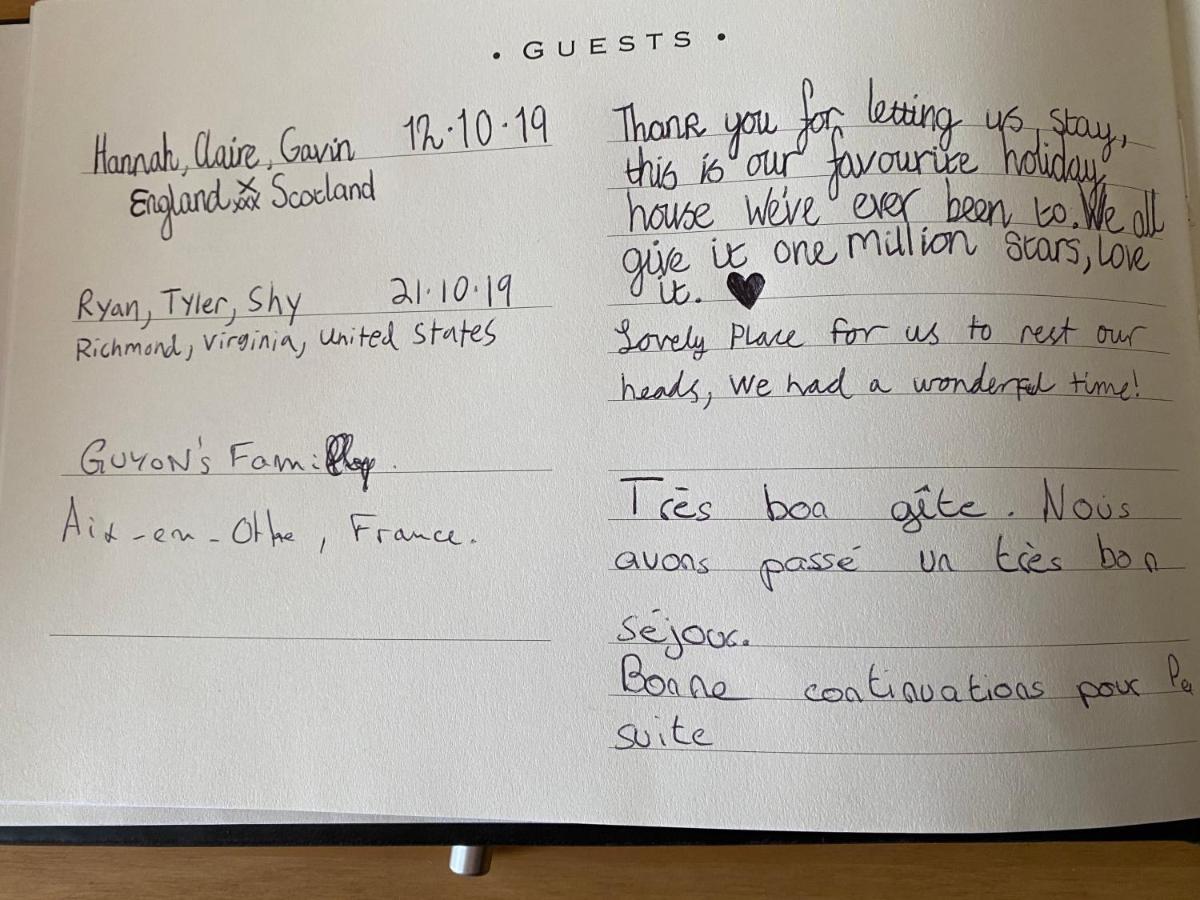 • GUESTS •
Hannah, Claire, Gavin 12.10.19
England xxx Scotland
Thank you for letting us stay,
this is our favourite holiday
house we've ever been to. We all
give it one million stars, love
it. ♥
Ryan, Tyler, Shy 21.10.19
Richmond, Virginia, United States
Lovely Place for us to rest our
heads, we had a wonderful time!
GUYON's Family.
Aix-en-Othe, France.
Très bon gîte. Nous
avons passé un très bon
séjour.
Bonne continuations pour la
suite